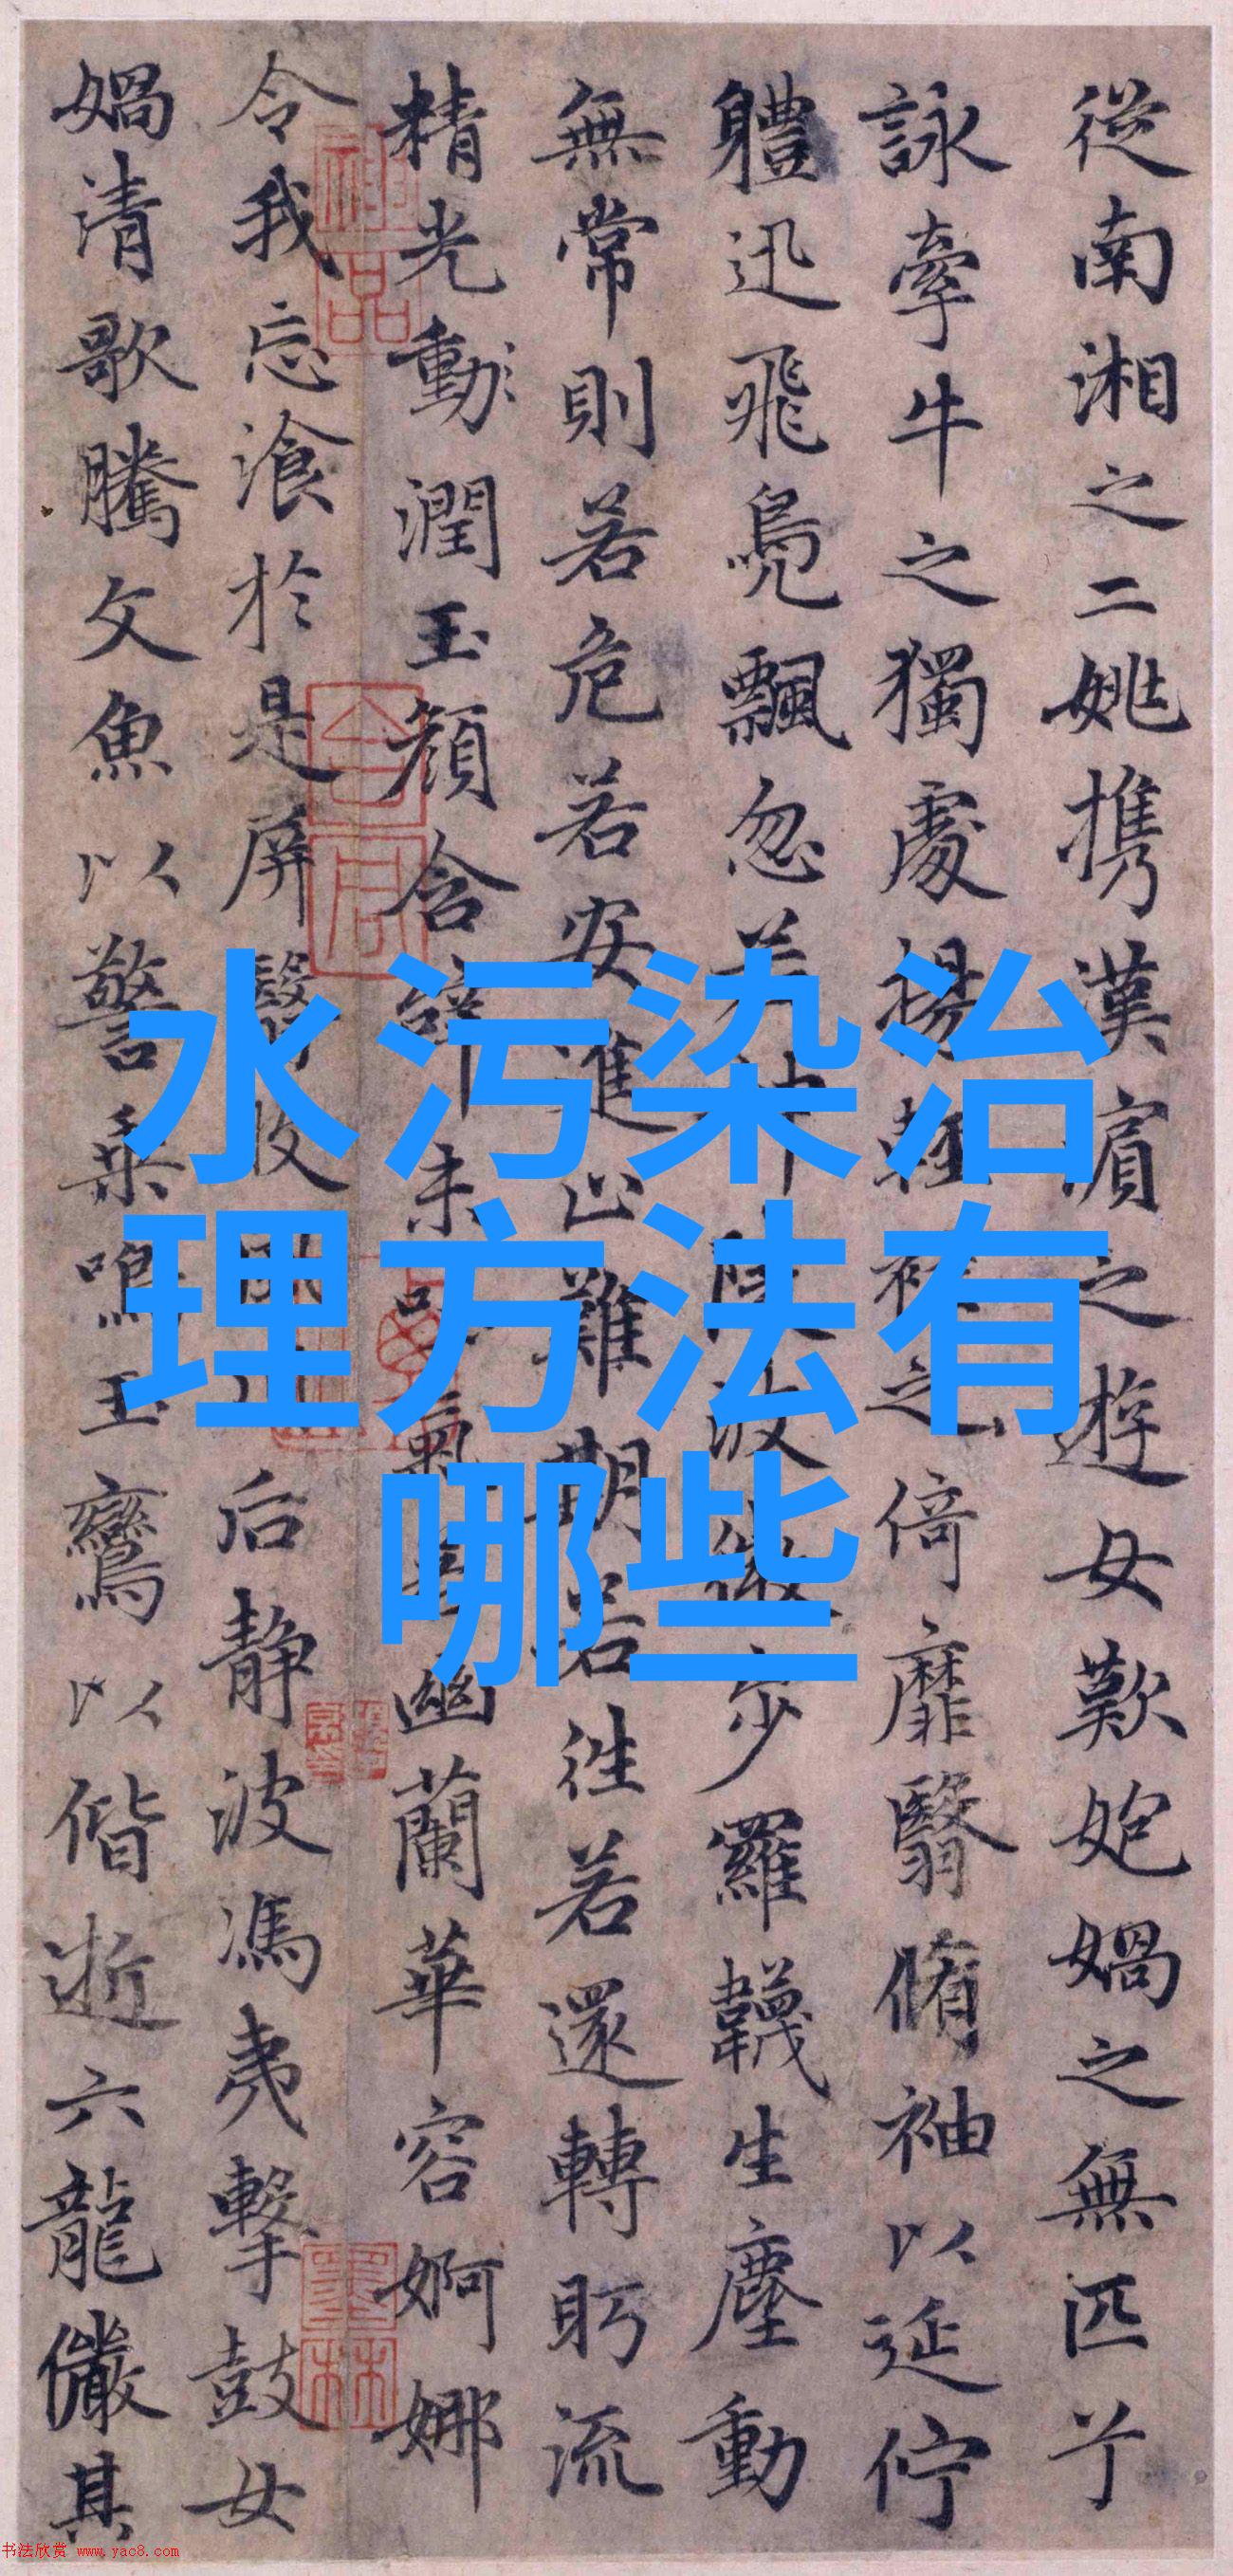 水污染治
理方法有
哪些
從南湘之二姚携漢濱之遊女歎媧之無匹兮
詠牽牛之獨處揚輕袿之倚靡翳脩袖以延佇
軆迅飛鳧飄忽若神陵波微步羅韈生塵動
無常則若危若安進止難期若往若還轉眄流
精光動潤玉顏含辭未吐氣若幽蘭華容婀娜
令我忘湌於是屏翳收風川后静波馮夷擊鼓女
媧清歌騰文魚以警乘鳴玉鸞以偕逝六龍儼其
神品
墨林
书法欣赏 www.yac8.com